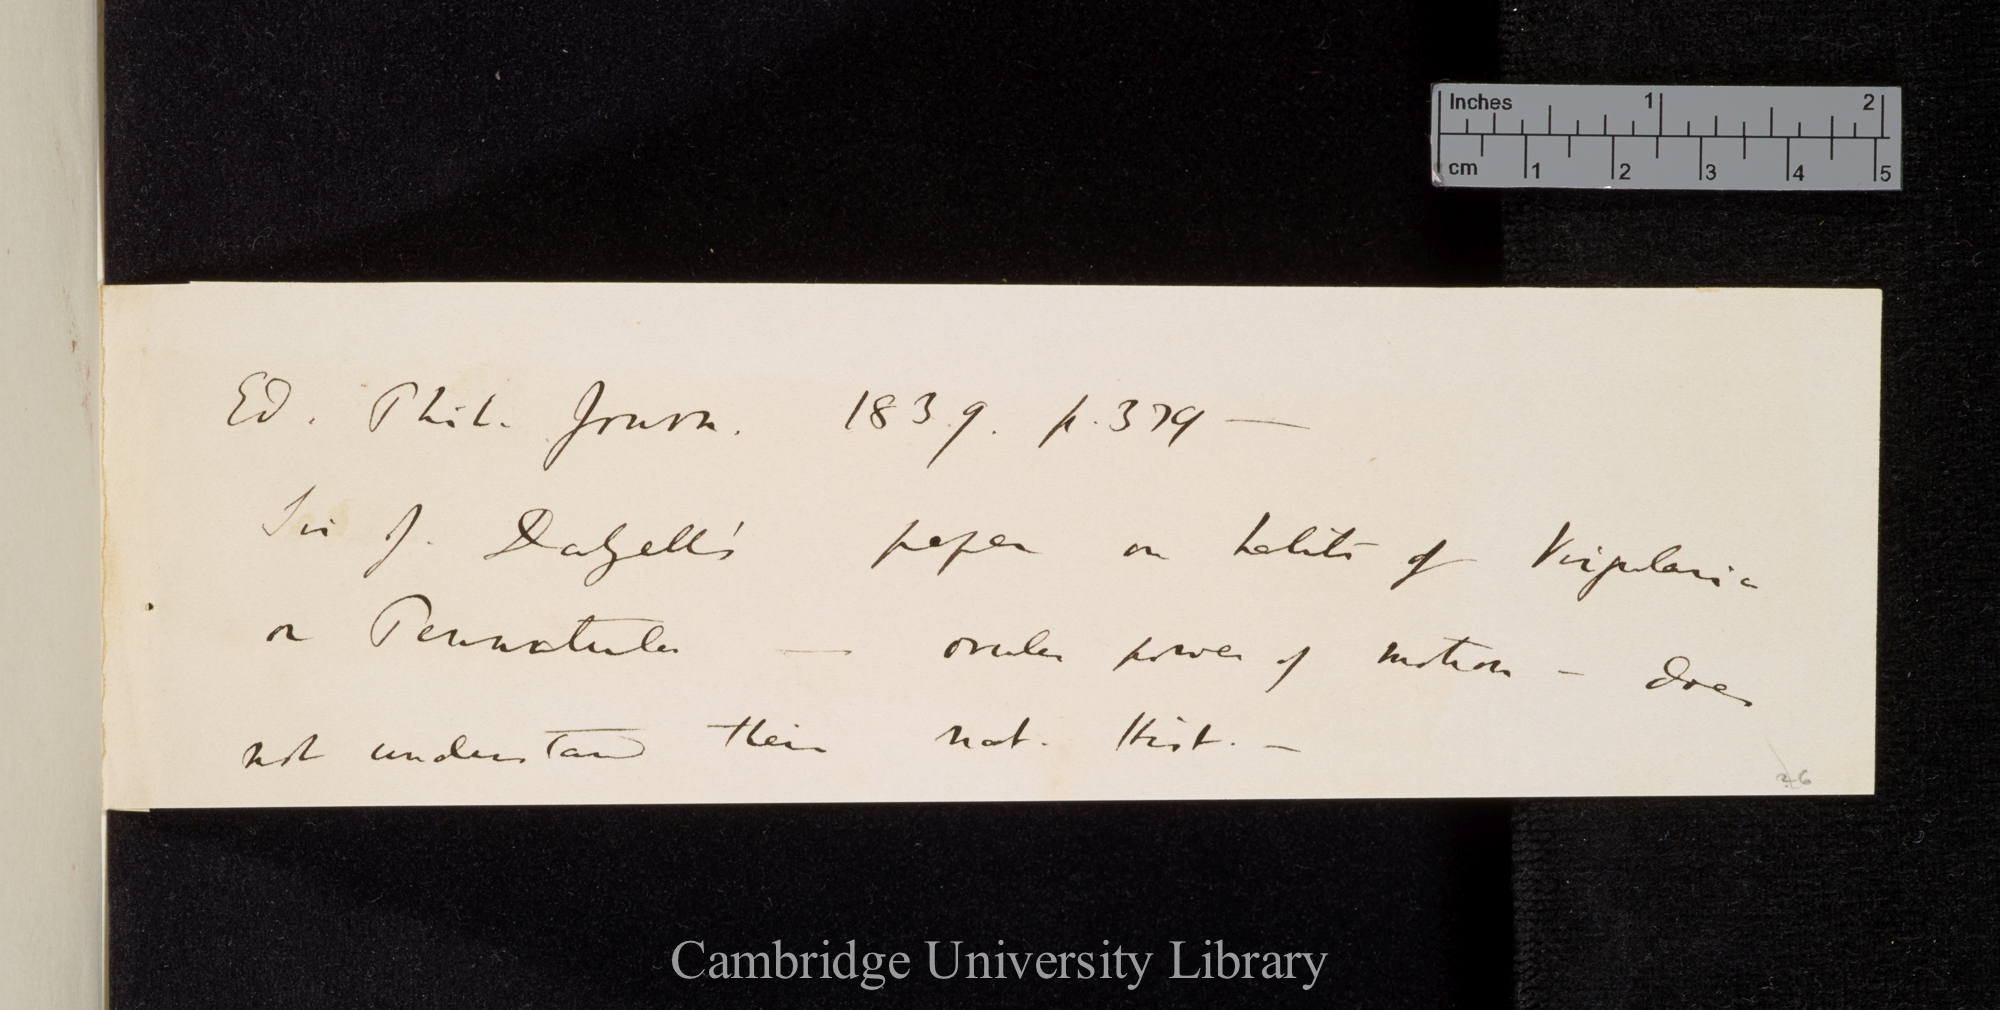 Inches 1 2
cm 1 2 3 4 5
Ed. Phil. Journ. 1839. p. 379 —
Sir J. Dalyell's paper on habits of Virgularia
or Pennatula — ovules power of motion – does
not understand their nat. Hist. –
26
Cambridge University Library